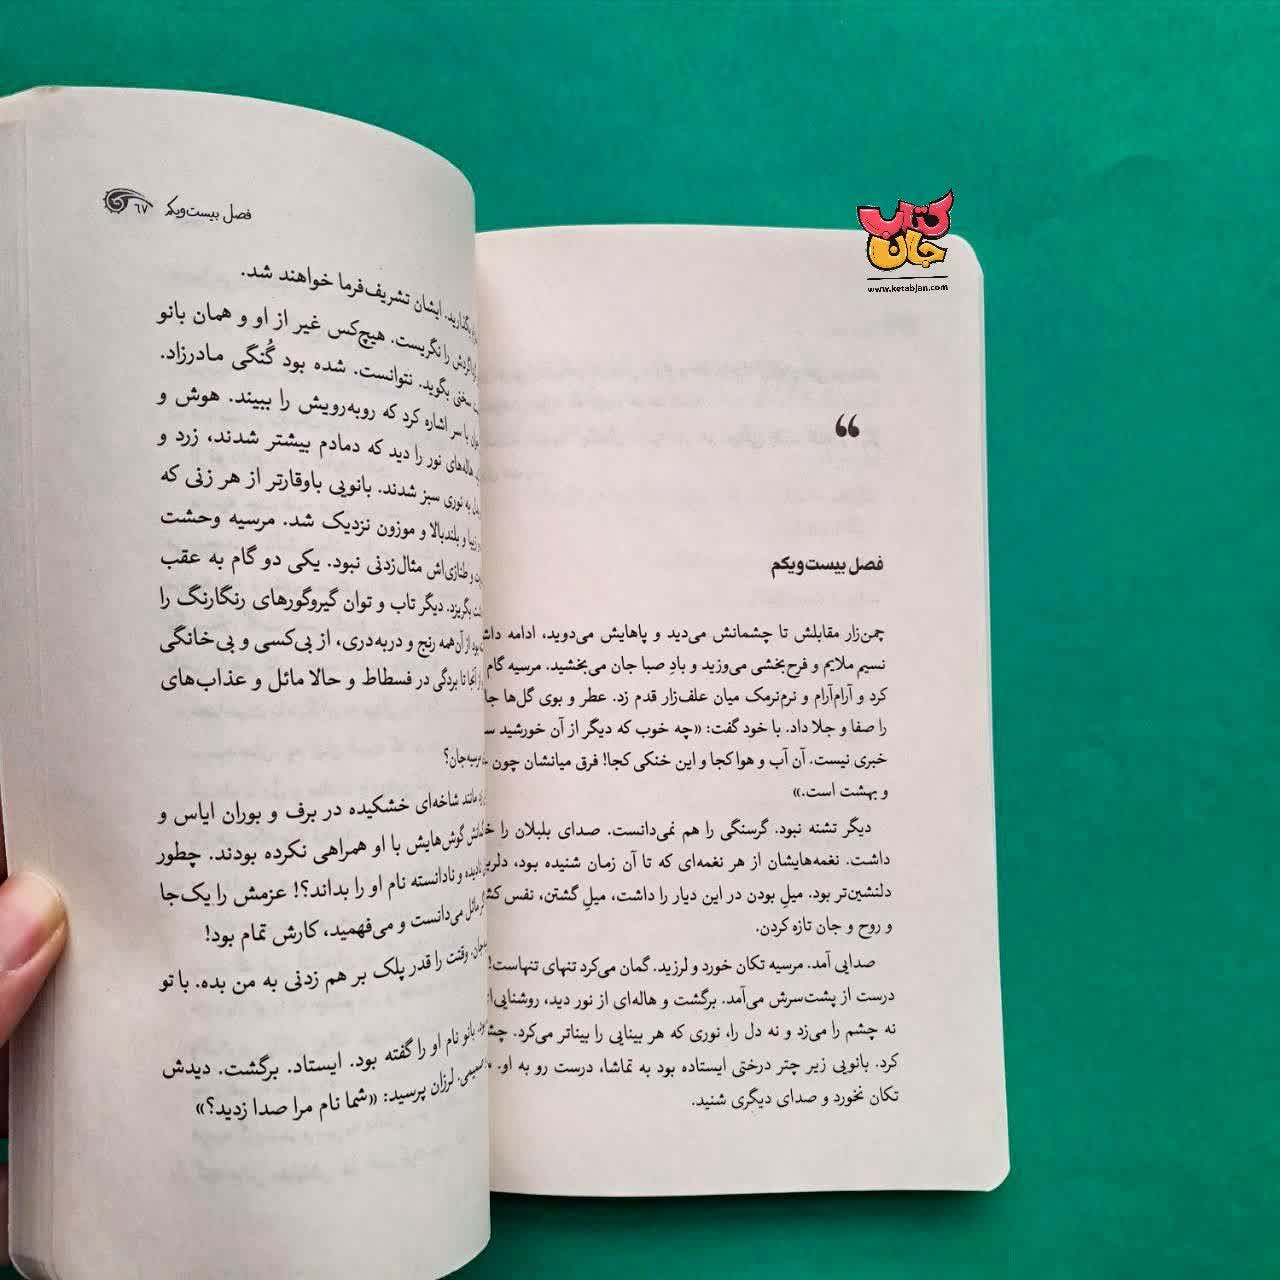 کتاب
جان
www.ketabjan.com
❝
فصل بیست‌ویکم
چمن‌زار مقابلش تا چشمانش می‌دید و پاهایش می‌دوید، ادامه
نسیم ملایم و فرح‌بخشی می‌وزید و بادِ صبا جان می‌بخشید. مرسیه گام
کرد و آرام‌آرام و نرم‌نرمک میان علف‌زار قدم زد. عطر و بوی گل‌ها
را صفا و جلا داد. با خود گفت: «چه خوب که دیگر از آن خورشید
خبری نیست. آن آب و هوا کجا و این خنکی کجا! فرق میانشان چون
و بهشت است.»
دیگر تشنه نبود. گرسنگی را هم نمی‌دانست. صدای بلبلان را
داشت. نغمه‌هایشان از هر نغمه‌ای که تا آن زمان شنیده بود،
دلنشین‌تر بود. میلِ بودن در این دیار را داشت، میلِ گشتن، نفس
و روح و جان تازه کردن.
صدایی آمد. مرسیه تکان خورد و لرزید. گمان می‌کرد تنهای تنهاست!
درست از پشت‌سرش می‌آمد. برگشت و هاله‌ای از نور دید،
نه چشم را می‌زد و نه دل را، نوری که هر بینایی را بیناتر می‌کرد.
کرد. بانویی زیر چتر درختی ایستاده بود به تماشا، درست رو به او.
تکان نخورد و صدای دیگری شنید.
فصل بیست‌ویکم ۶۷
بگذارید. ایشان تشریف‌فرما خواهند شد.
را نگریست. هیچ‌کس غیر از او و همان بانو
سخنی بگوید. نتوانست. شده بود گُنگی مادرزاد.
با سر اشاره کرد که روبه‌رویش را ببیند. هوش و
هاله‌های نور را دید که دمادم بیشتر شدند، زرد و
به نوری سبز شدند. بانویی باوقارتر از هر زنی که
زیبا و بلندبالا و موزون نزدیک شد. مرسیه وحشت
و طنازی‌اش مثال‌زدنی نبود. یکی دو گام به عقب
بگریزد. دیگر تاب و توان گیروگورهای رنگارنگ را
بود از آن‌همه رنج و دربه‌دری، از بی‌کسی و بی‌خانگی
از آنجا تا بردگی در فسطاط و حالا مائل و عذاب‌های
مرسیه‌جان؟
مانند شاخه‌ای خشکیده در برف و بوران ایاس و
گوش‌هایش با او همراهی نکرده بودند. چطور
نادیده و نادانسته نام او را بداند؟! عزمش را یک‌جا
مائل می‌دانست و می‌فهمید، کارش تمام بود!
وقتت را قدر پلک بر هم زدنی به من بده. با تو
بانو نام او را گفته بود. ایستاد. برگشت. دیدش
لرزان پرسید: «شما نام مرا صدا زدید؟»